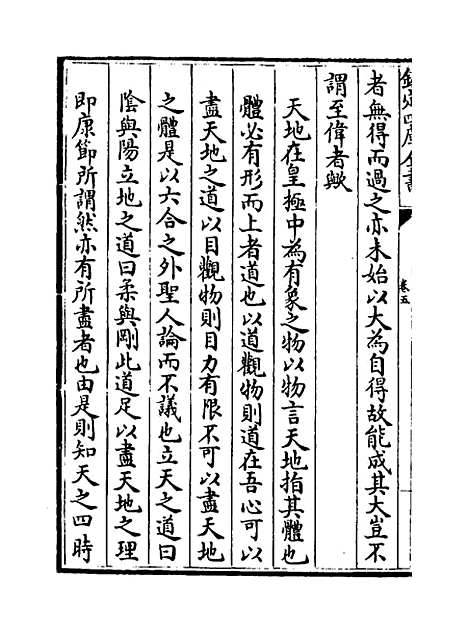 欽定四庫全書
卷五
者無得而過之亦未始以大為自得故能成其大豈不
謂至偉者歟
天地在皇極中為有象之物以物言天地指其體也
體必有形而上者道也以道觀物則道在吾心可以
盡天地之道以目觀物則目力有限不可以盡天地
之體是以六合之外聖人論而不議也立天之道曰
陰與陽立地之道曰柔與剛此道足以盡天地之理
即康節所謂然亦有所盡者也由是則知天之四時